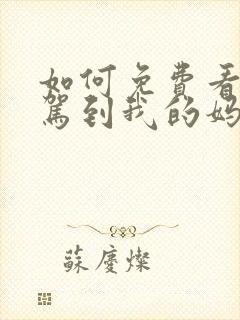 如何免费看
驾到我的妈
蘇慶燦